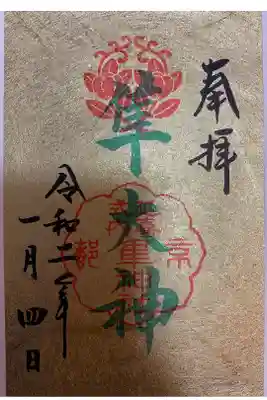 奉拝
隼大神
京都
令和二年
一月四日